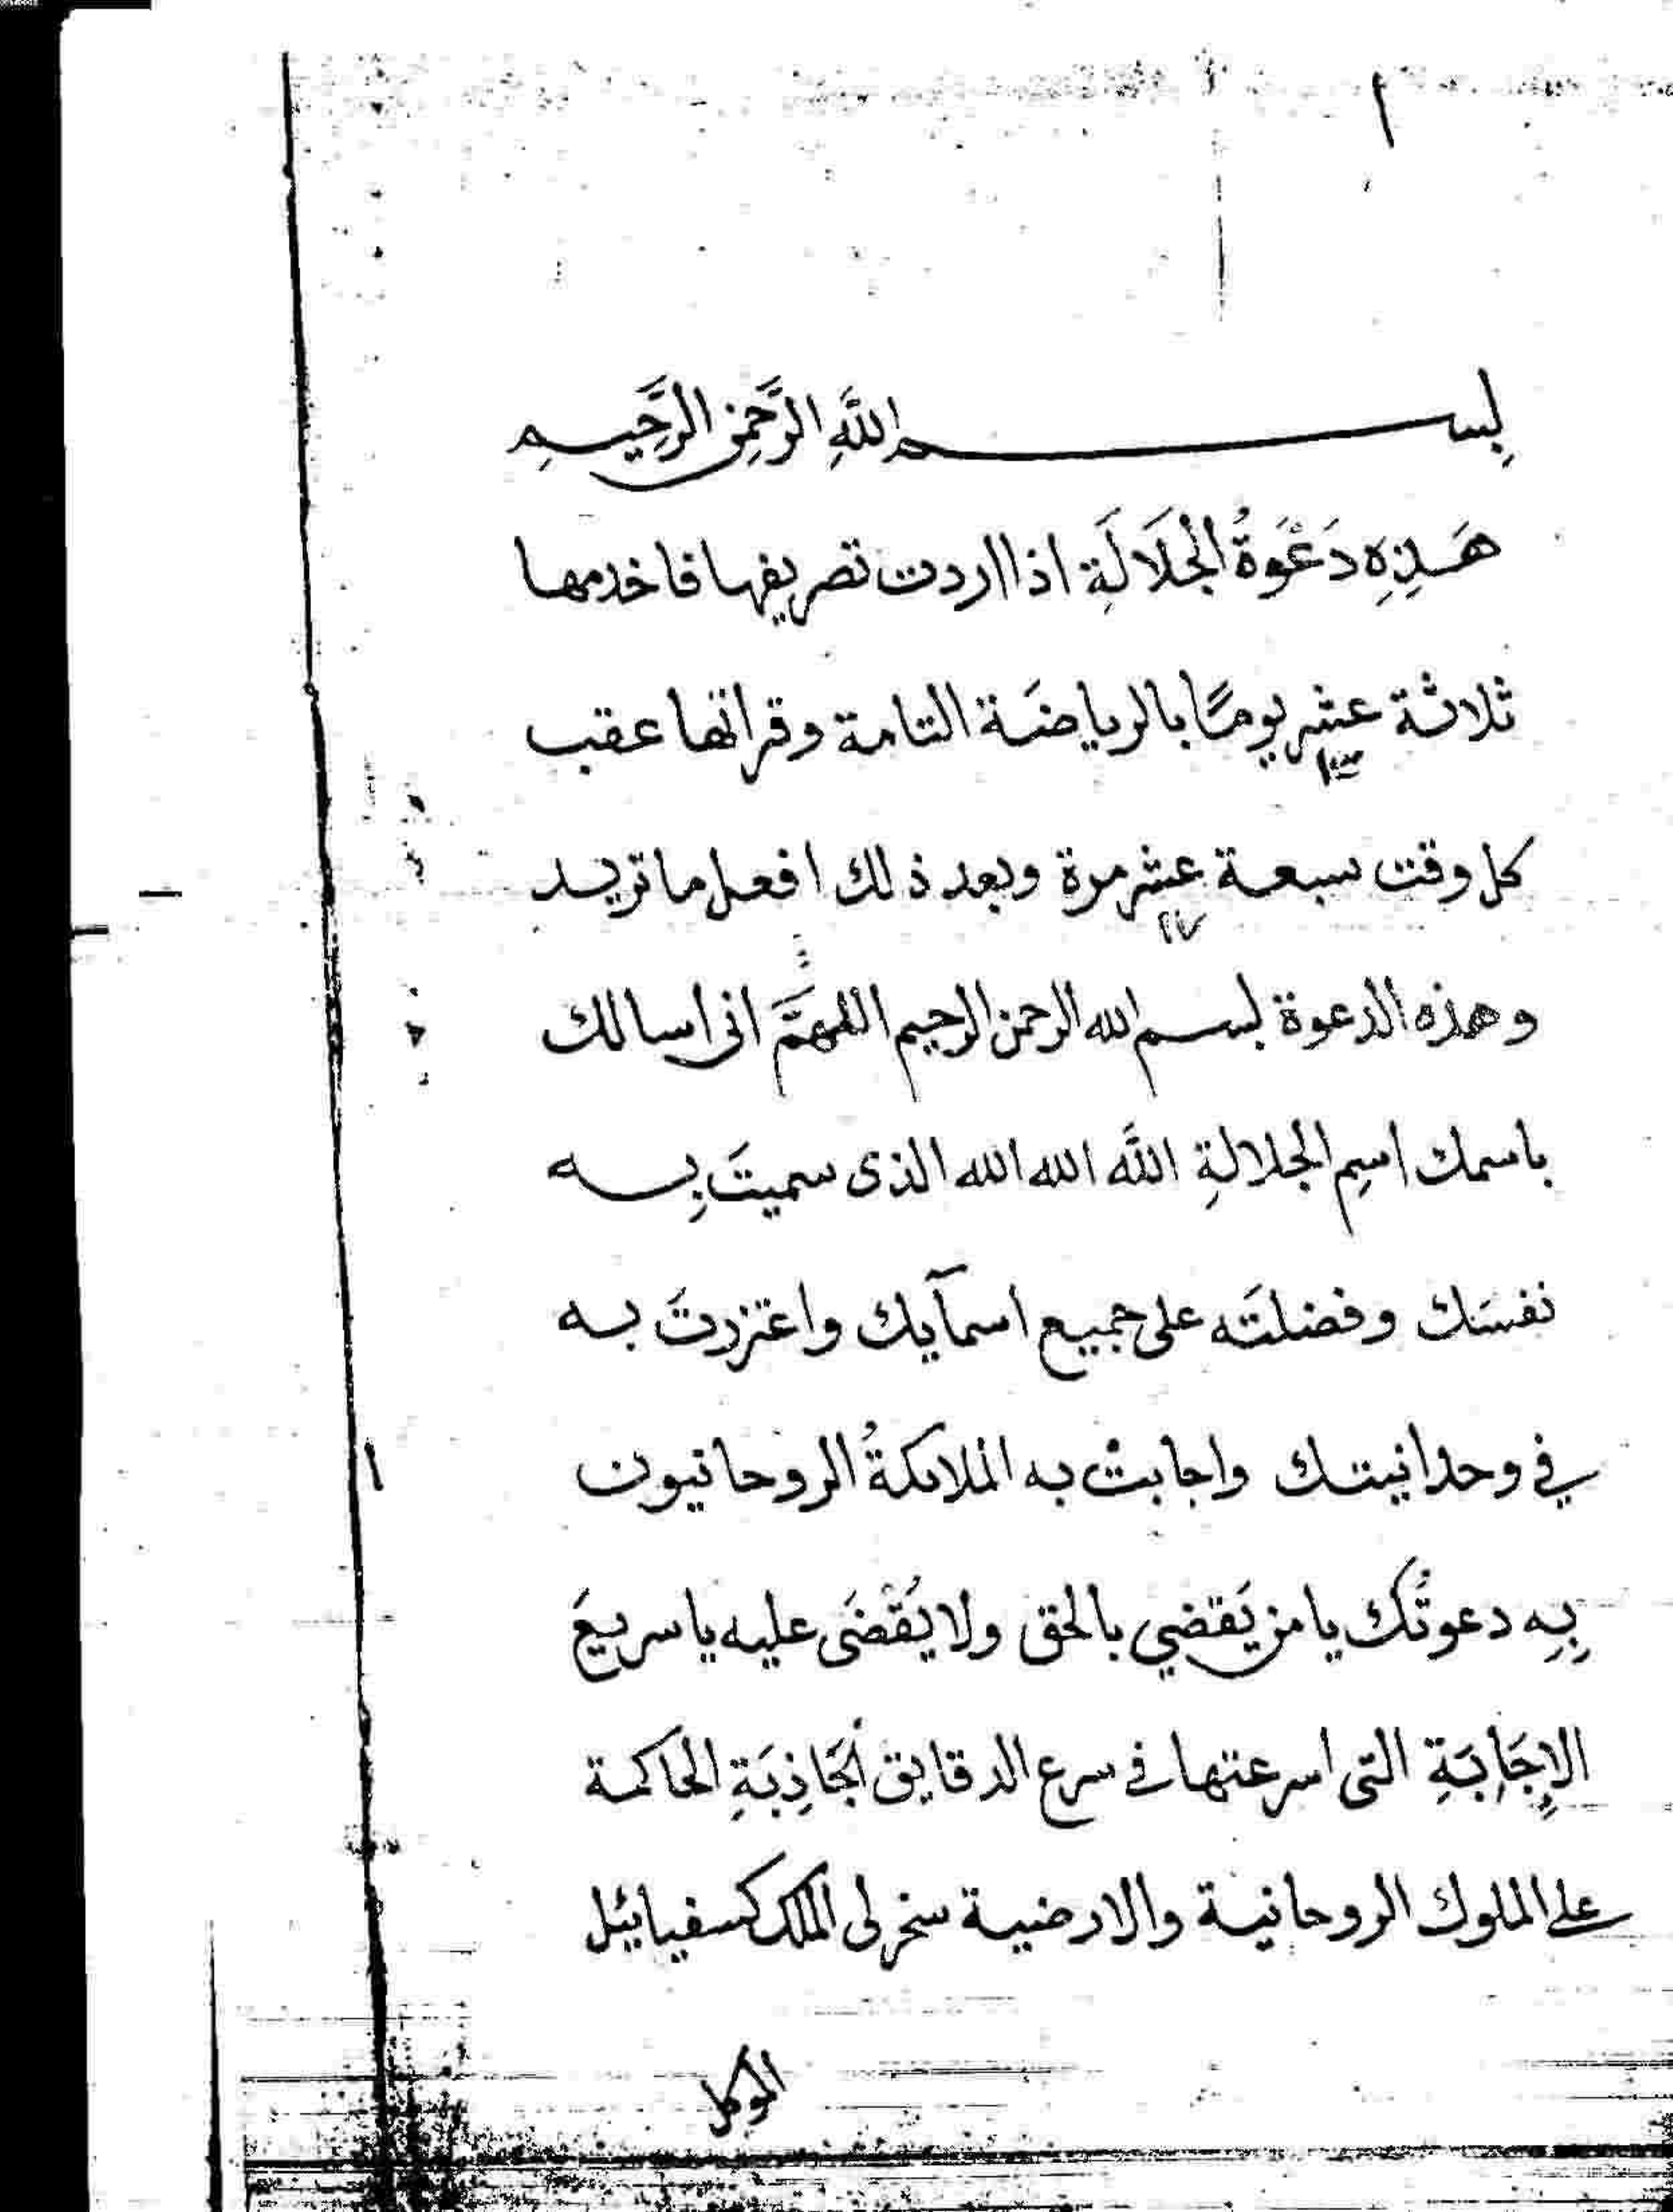 ١
بِســـــم اللَّهِ الرَّحمٰنِ الرَّحِيـمِ
هَـذِهِ دَعْوَةُ الْجَلَالَةِ اذا اردت تصريفها فاخدمها
ثلاثة عشر يومًا بالرياضَة التامة وقراتها عقب
١٣
كل وقت سبعة عشر مرة وبعد ذلك افعل ما تريد
١٧
وهذه الدعوة بسم الله الرحمن الرحيم اللهمَّ انى اسالك
باسمك اسمِ الجلالةِ اللَّه الله الله الذى سميتَ بِـه
نفسَك وفضلتَه على جميع اسمآيك واعتززتَ به
في وحدانيتك واجابتْ به الملايكةُ الروحانيون
بِهِ دعوتُك يا من يَقضي بالحق ولا يُقْضَى عليه يا سريعَ
الإِجَابَةِ التى اسرعتها فى سرع الدقايق الجَاذِبَةِ الحاكمة
على الملوك الروحانية والارضية سخر لى الملك كسفيائيل
الموكل